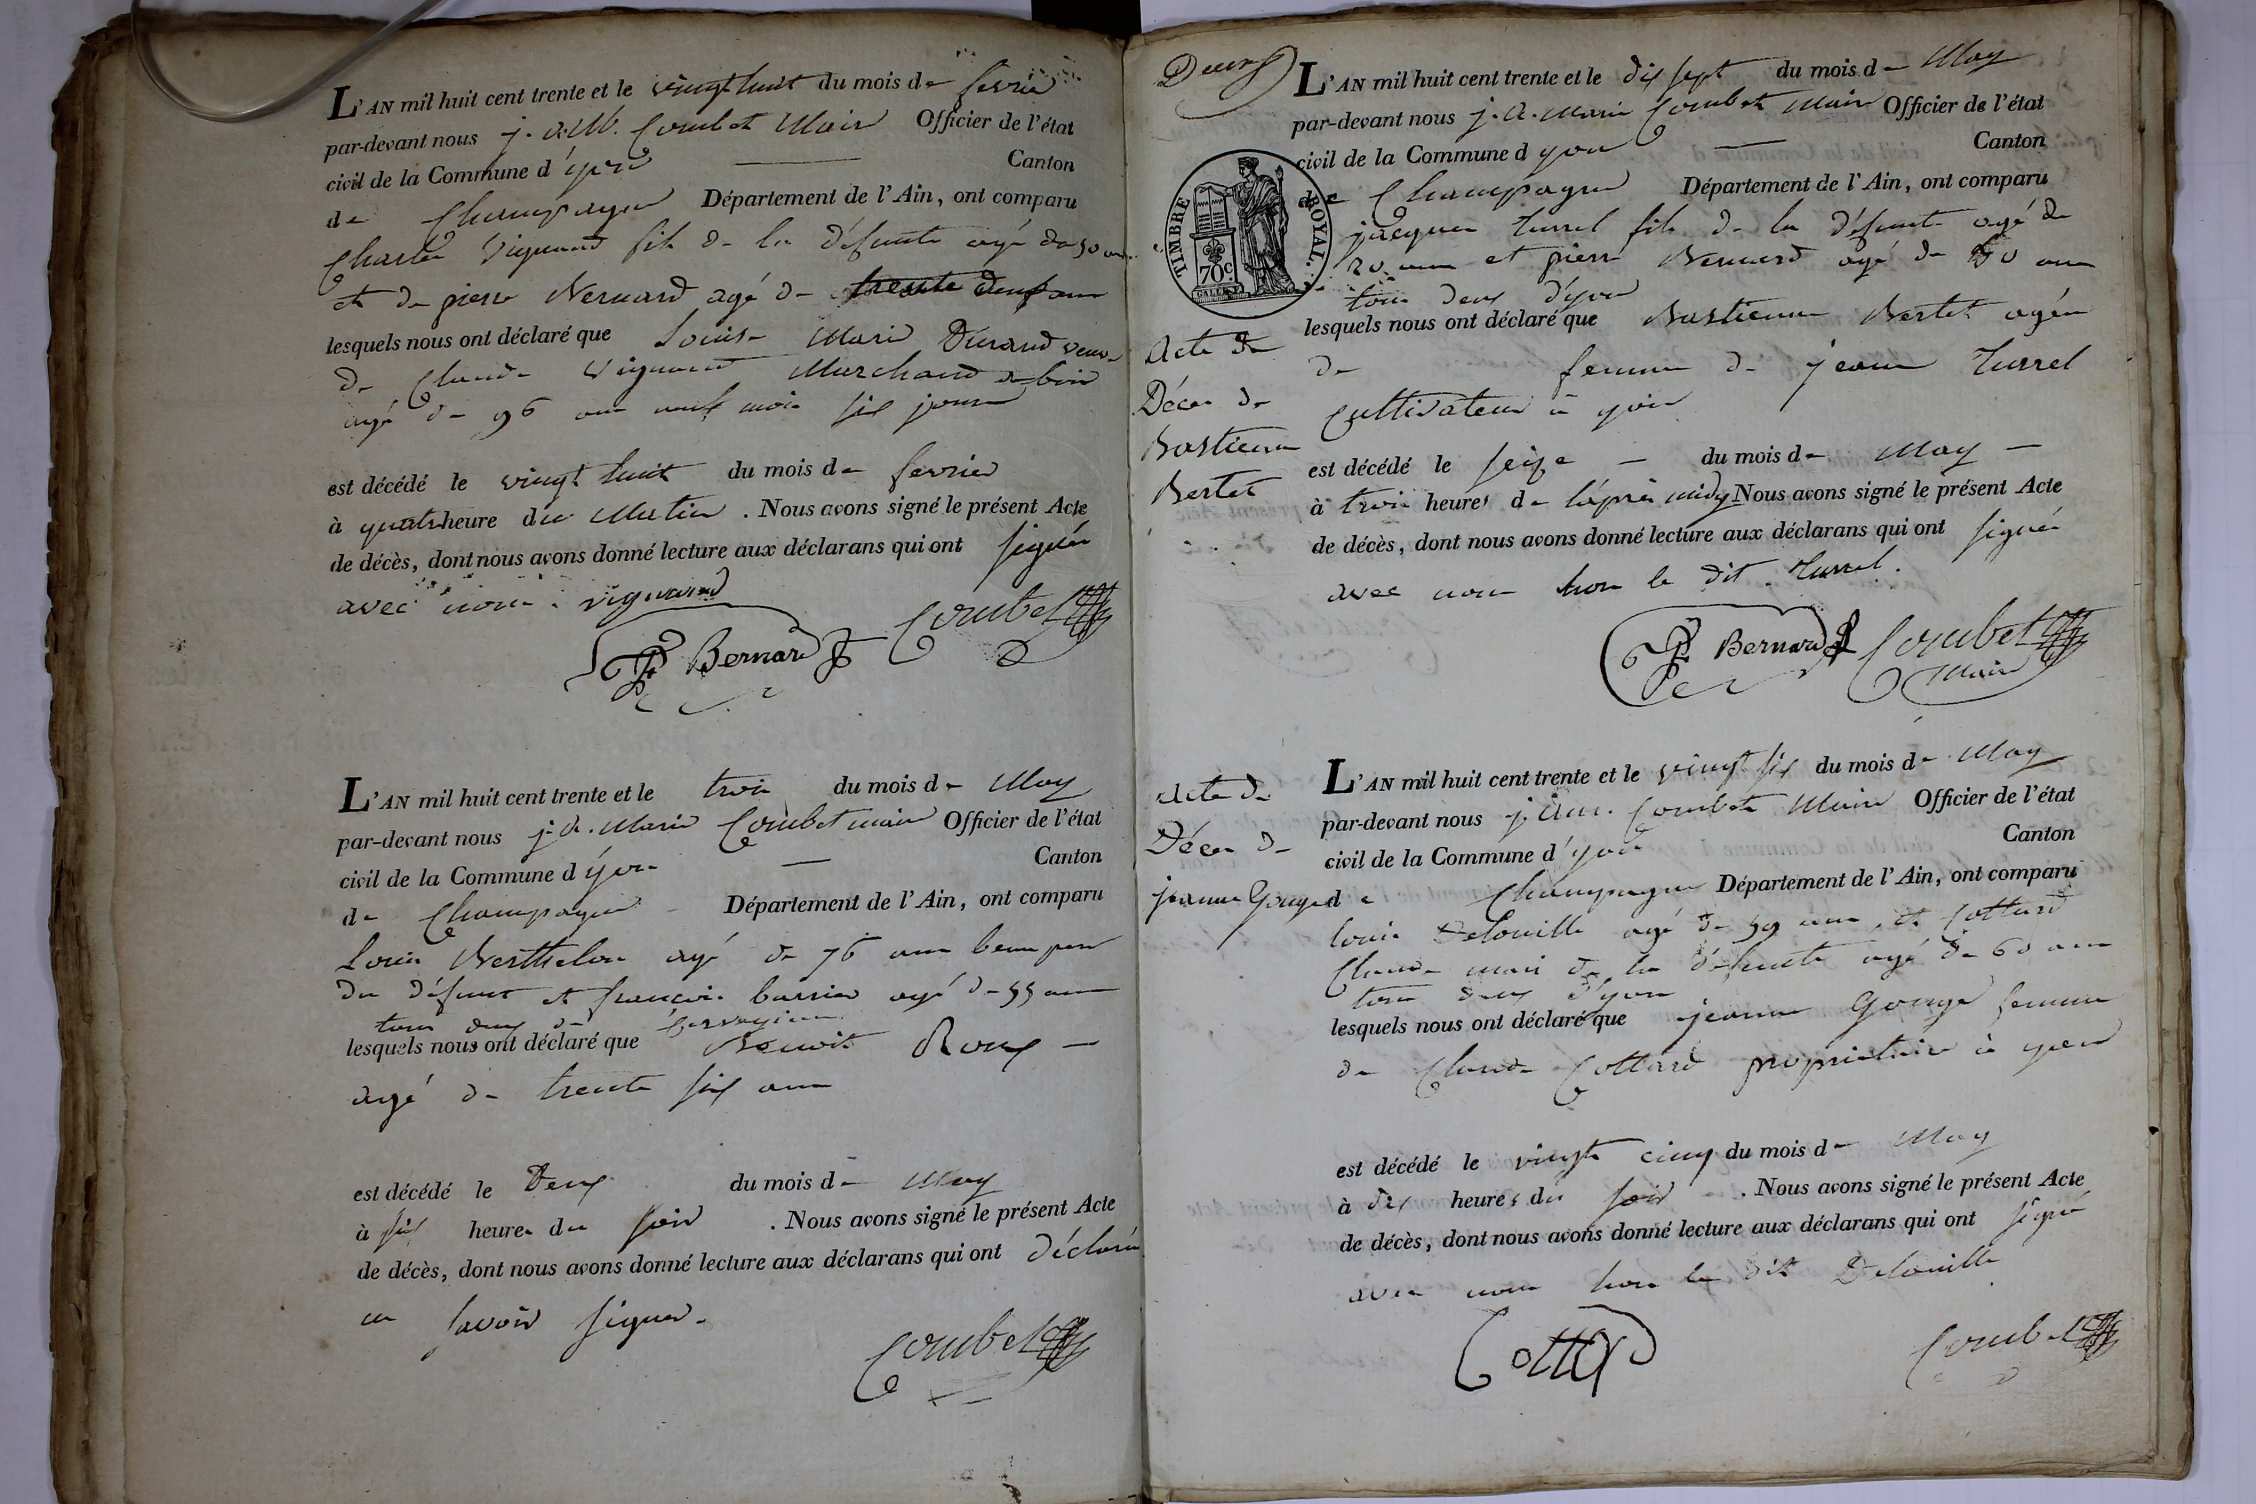 L'AN mil huit cent trente et le vingt huit du mois de fevrier
par-devant nous j. a. M. Combet Maire Officier de l'état
civil de la Commune d'yon Canton
de Champagne Département de l'Ain, ont comparu
Charles Vignand fils de la défunte agé de 50 ans
et de pierre Bernard agé de trente deux ans
lesquels nous ont déclaré que Louise Marie Durand veuve
de Claude Vignand Marchand de bois
agé de 96 ans neuf mois six jours
est décédé le vingt huit du mois de fevrier
à quatre heure du Matin . Nous avons signé le présent Acte
de décès, dont nous avons donné lecture aux déclarans qui ont signés
avec nous. vignand
P Bernard Combet
L'AN mil huit cent trente et le trois du mois de May
par-devant nous j. a. Marie Combet maire Officier de l'état
civil de la Commune d yon Canton
de Champagne Département de l'Ain, ont comparu
Louis Berthelon agé de 76 ans beau pere
du défunt et françois barrier agé de 55 ans
tous deux de
lesquels nous ont déclaré que Benoit Roux
agé de trente six ans
est décédé le Deux du mois de May
à six heures du soir . Nous avons signé le présent Acte
de décès, dont nous avons donné lecture aux déclarans qui ont déclaré
ne savoir signer.
Combet
Deux
TIMBRE ROYAL.
70c
L'AN mil huit cent trente et le dix sept du mois de May
par-devant nous j. a. Marie Combet Maire Officier de l'état
civil de la Commune d yon Canton
de Champagne Département de l'Ain, ont comparu
jacques Turrel fils de la défunte agé de
20 ans et pierre Bernard agé de 50 ans
tous deux d'yon
lesquels nous ont déclaré que Bastienne Bertet agée
de femme de jean Turrel
Cultivateur à yon
est décédé le seize du mois de May
à trois heures de l'après midy Nous avons signé le présent Acte
de décès, dont nous avons donné lecture aux déclarans qui ont signés
avec nous hors le dit Turrel.
P Bernard Combet
Maire
Acte de
Décès de
Bastienne
Bertet
L'AN mil huit cent trente et le vingt six du mois de May
par-devant nous j. a. m. Combet Maire Officier de l'état
civil de la Commune d'yon Canton
de Champagne Département de l'Ain, ont comparu
louis Delouille agé de 59 ans, et Cottard
Claude mari de la défunte agé de 60 ans
tous deux d'yon
lesquels nous ont déclaré que jeanne Gouge femme
de Claude Cottard proprietaire à yon
est décédé le vingt cinq du mois de May
à dix heures du soir . Nous avons signé le présent Acte
de décès, dont nous avons donné lecture aux déclarans qui ont signé
avec nous hors le dit Delouille
Combet
Acte de
Décès de
jeanne Gouge